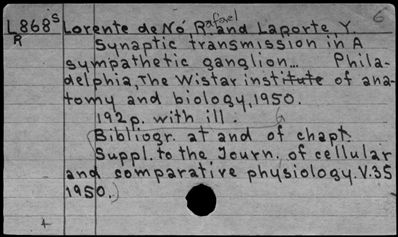 6
L868s Lorente de Nó, Rafael and Laporte, Y.
R Synaptic transmission in A
sympathetic ganglion... Phila-
delphia, The Wistar institute of ana-
tomy and biology, 1950.
192p. with ill.
(Bibliogr. at and of chapt.
Suppl. to the Journ. of cellular
and comparative physiology. V.35
1950.)